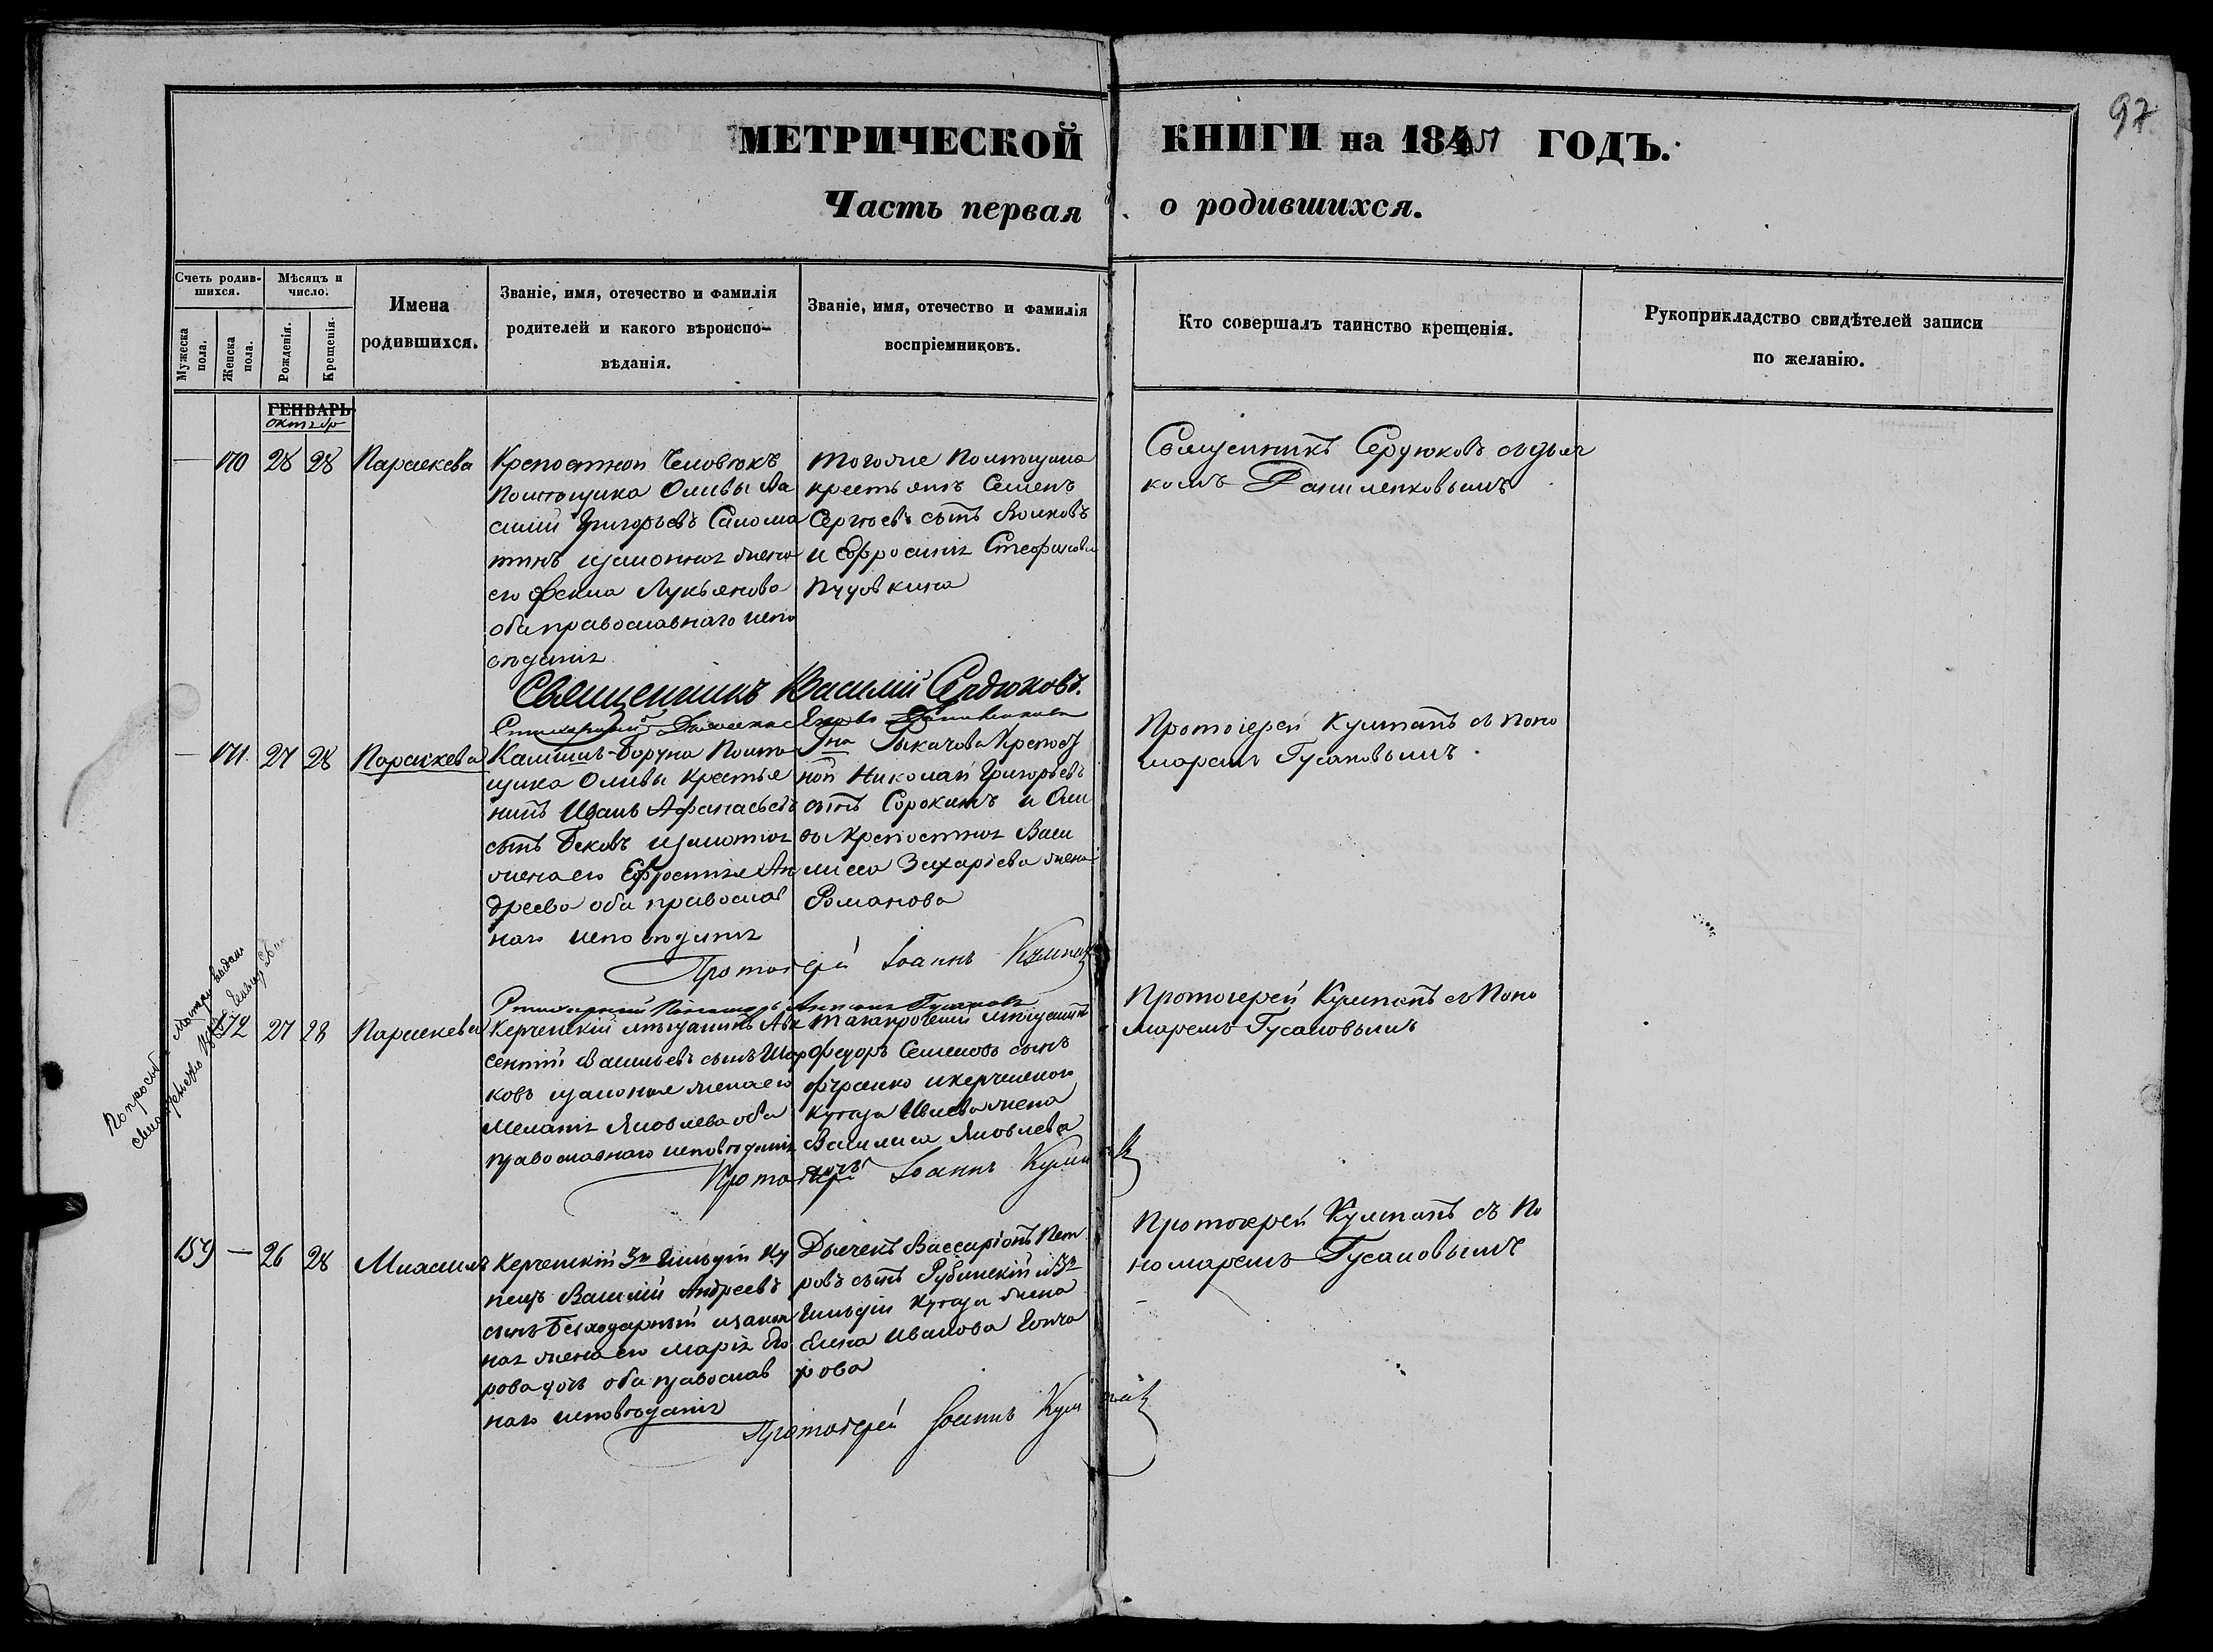 97
МЕТРИЧЕСКОЙ КНИГИ на 1851 ГОДЪ.
Часть первая о родившихся.
Счетъ родив-
шихся.
Мужеска
пола.
Женска
пола.
Мѣсяцъ и
число.
Рожденія.
Крещенія.
Имена
родившихся.
Званіе, имя, отечество и фамилія
родителей и какого вѣроиспо-
вѣданія.
Званіе, имя, отечество и фамилія
воспріемниковъ.
Кто совершалъ таинство крещенія.
Рукоприкладство свидѣтелей записи
по желанію.
ГЕНВАРЬ
октябр
— 170 28 28 Параскева
Крепостной Человѣкъ
Помѣщика Оливы Ва
силій Григорьевъ Салома
тинъ и законная жена
его Фекла Лукьянова
оба православнаго испо
вѣданія
тогоже Помѣщика
крестьянъ Семенъ
Сергѣевъ сынъ Волковъ
и Ефросинія Стефанова
Пудовкина
Священникъ Сердюковъ съ дьяч
комъ Даниленковымъ
Священникъ Василій Сердюковъ.
— 171. 27 28 Параскева
Камишъ-Буруна Помѣ
щика Оливы крестья
нинъ Иванъ Афанасьевъ
сынъ Бековъ и законная
жена его Ефросинія Ан
дреева оба православ
наго исповѣданія
Гна Рыкачова Крепост
ной Николай Григорьевъ
сынъ Сорокинъ и Оли
вы Крепостная Васи
лиса Захаріева жена
Романова
Протоіерей Кумпанъ съ Поно
маремъ Гусаковымъ.
Протоіерей Іоаннъ Кумпанъ
172 27 28 Параскева
Керченскій мѣщанинъ Авк
сентій Васильевъ сынъ
ковъ и законная жена его
Меланія Яковлева оба
православнаго исповѣданія
Таганрогскій мѣщанинъ
Федоръ Семеновъ сынъ
и керченскаго
купца жена
Василиса Яковлева
Протоіерей Кумпанъ съ Поно
маремъ Гусаковымъ
Протоіерей Іоаннъ Кумпанъ
159 — 26 28
Керченскій 3й Гильдіи Ку
пецъ Василій Андреевъ
сынъ и закон
ная жена его Марія Его
рова дочь оба православ
наго исповѣданія
Дьячекъ Виссаріонъ Пет
ровъ сынъ Рубинскій и 3й
Гильдіи купца жена
Елена Иванова Гонча
рова
Протоіерей Кумпанъ съ По
номаремъ Гусаковымъ
Протоіерей Іоаннъ Кумпанъ